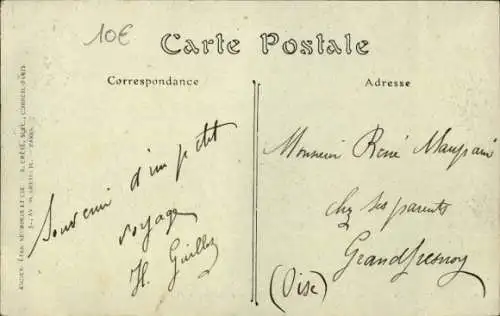 10€
Carte Postale
Correspondance
Adresse
Souvenir d'un petit
voyage
H.
Monsieur René
chez ses parents
Grandfresnoy
(Oise)